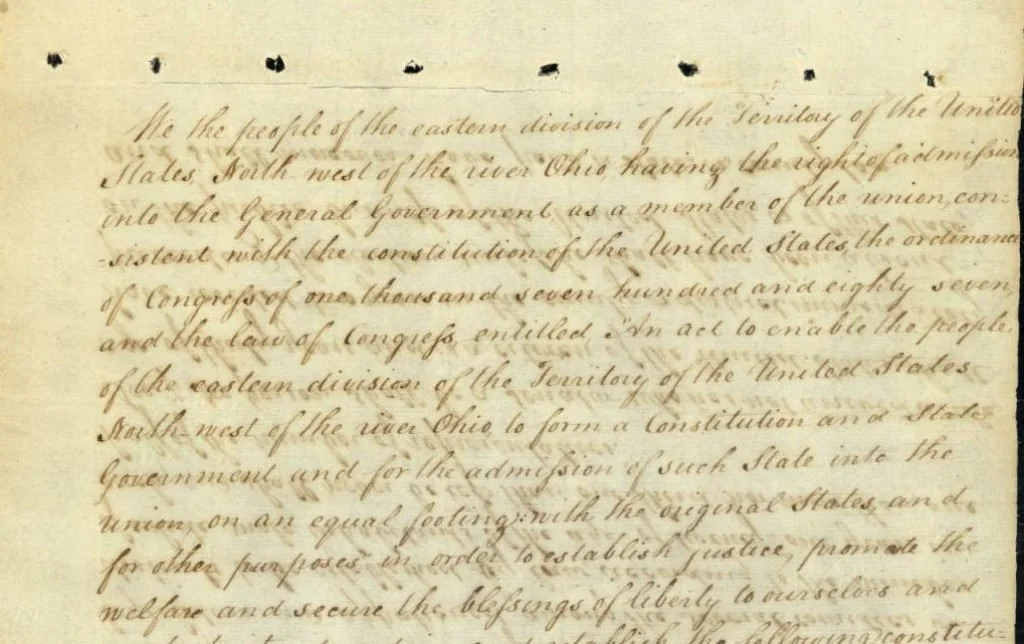 We the people of the eastern division of the Territory of the United
States, North-west of the river Ohio, having the right of admission
into the General Government, as a member of the union, con-
-sistent with the constitution of the United States, the ordinance
of Congress of one thousand seven hundred and eighty seven,
and the law of Congress, entitled, "An act to enable the people
of the eastern division of the Territory of the United States
North-west of the river Ohio, to form a Constitution and State
Government, and for the admission of such State into the
union, on an equal footing with the original States, and
for other purposes" in order to establish justice, promote the
welfare and secure the blessings of liberty to ourselves and
establish the following constitu-